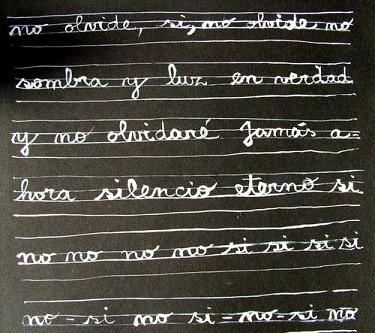 no olvide, si, no olvide no
sombra y luz en verdad
y no olvidaré Jamás a=
hora silencio eterno si
no no no no si si si si
no = si no si = no = si no